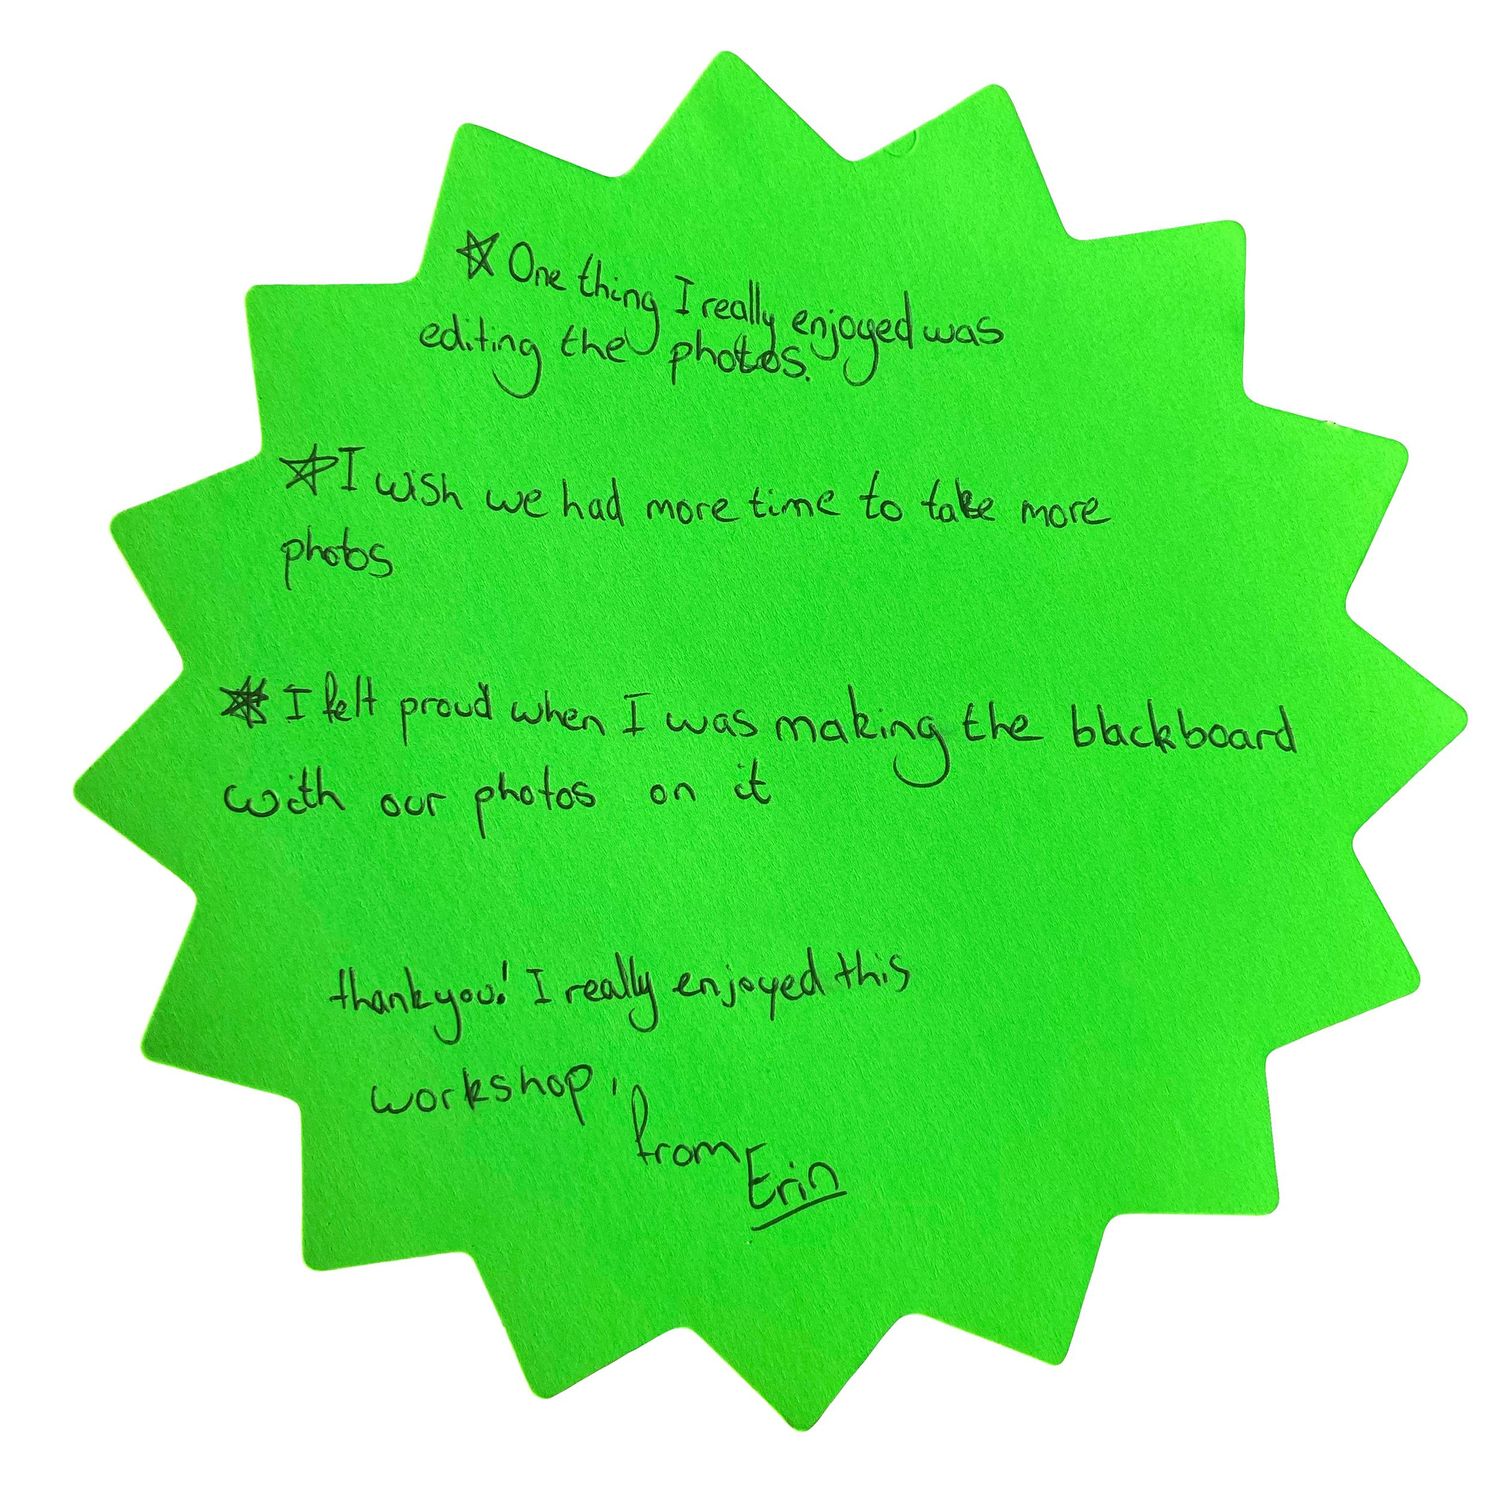 ☆ One thing I really enjoyed was
editing the photos.
☆ I wish we had more time to take more
photos
☆ I felt proud when I was making the blackboard
with our photos on it
thankyou! I really enjoyed this
workshop,
from
Erin